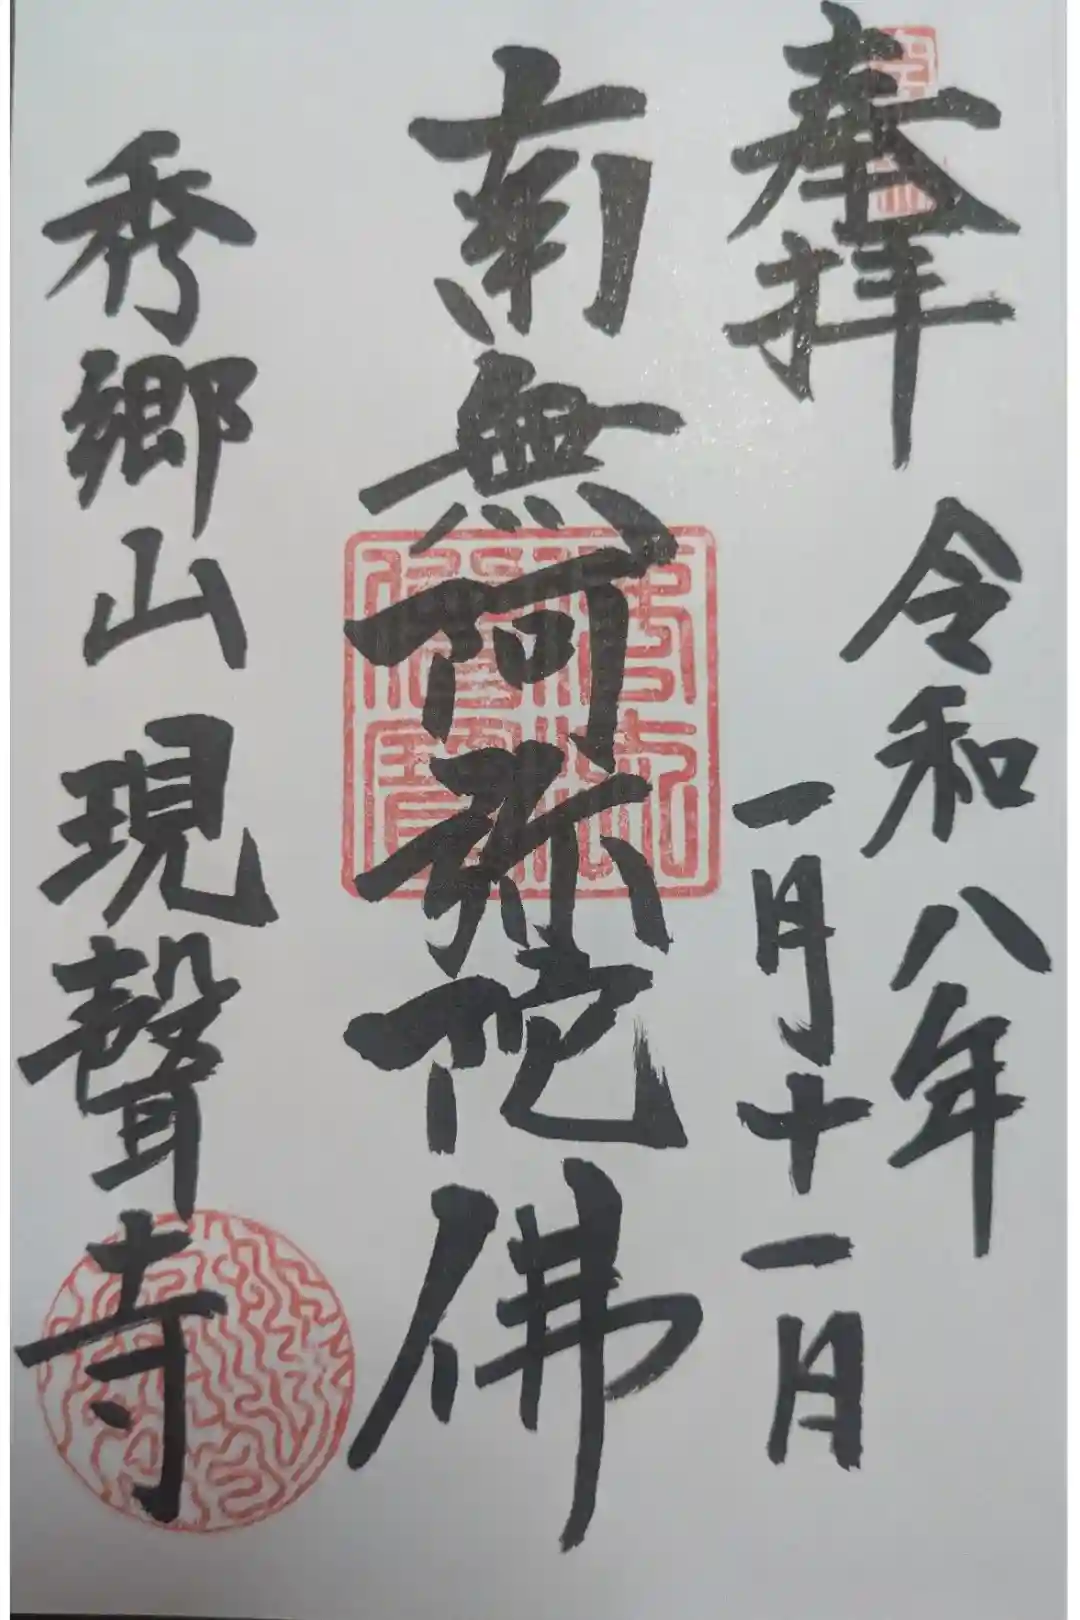 奉拝
令和八年
一月十一日
南無阿弥陀佛
秀郷山 現聲寺